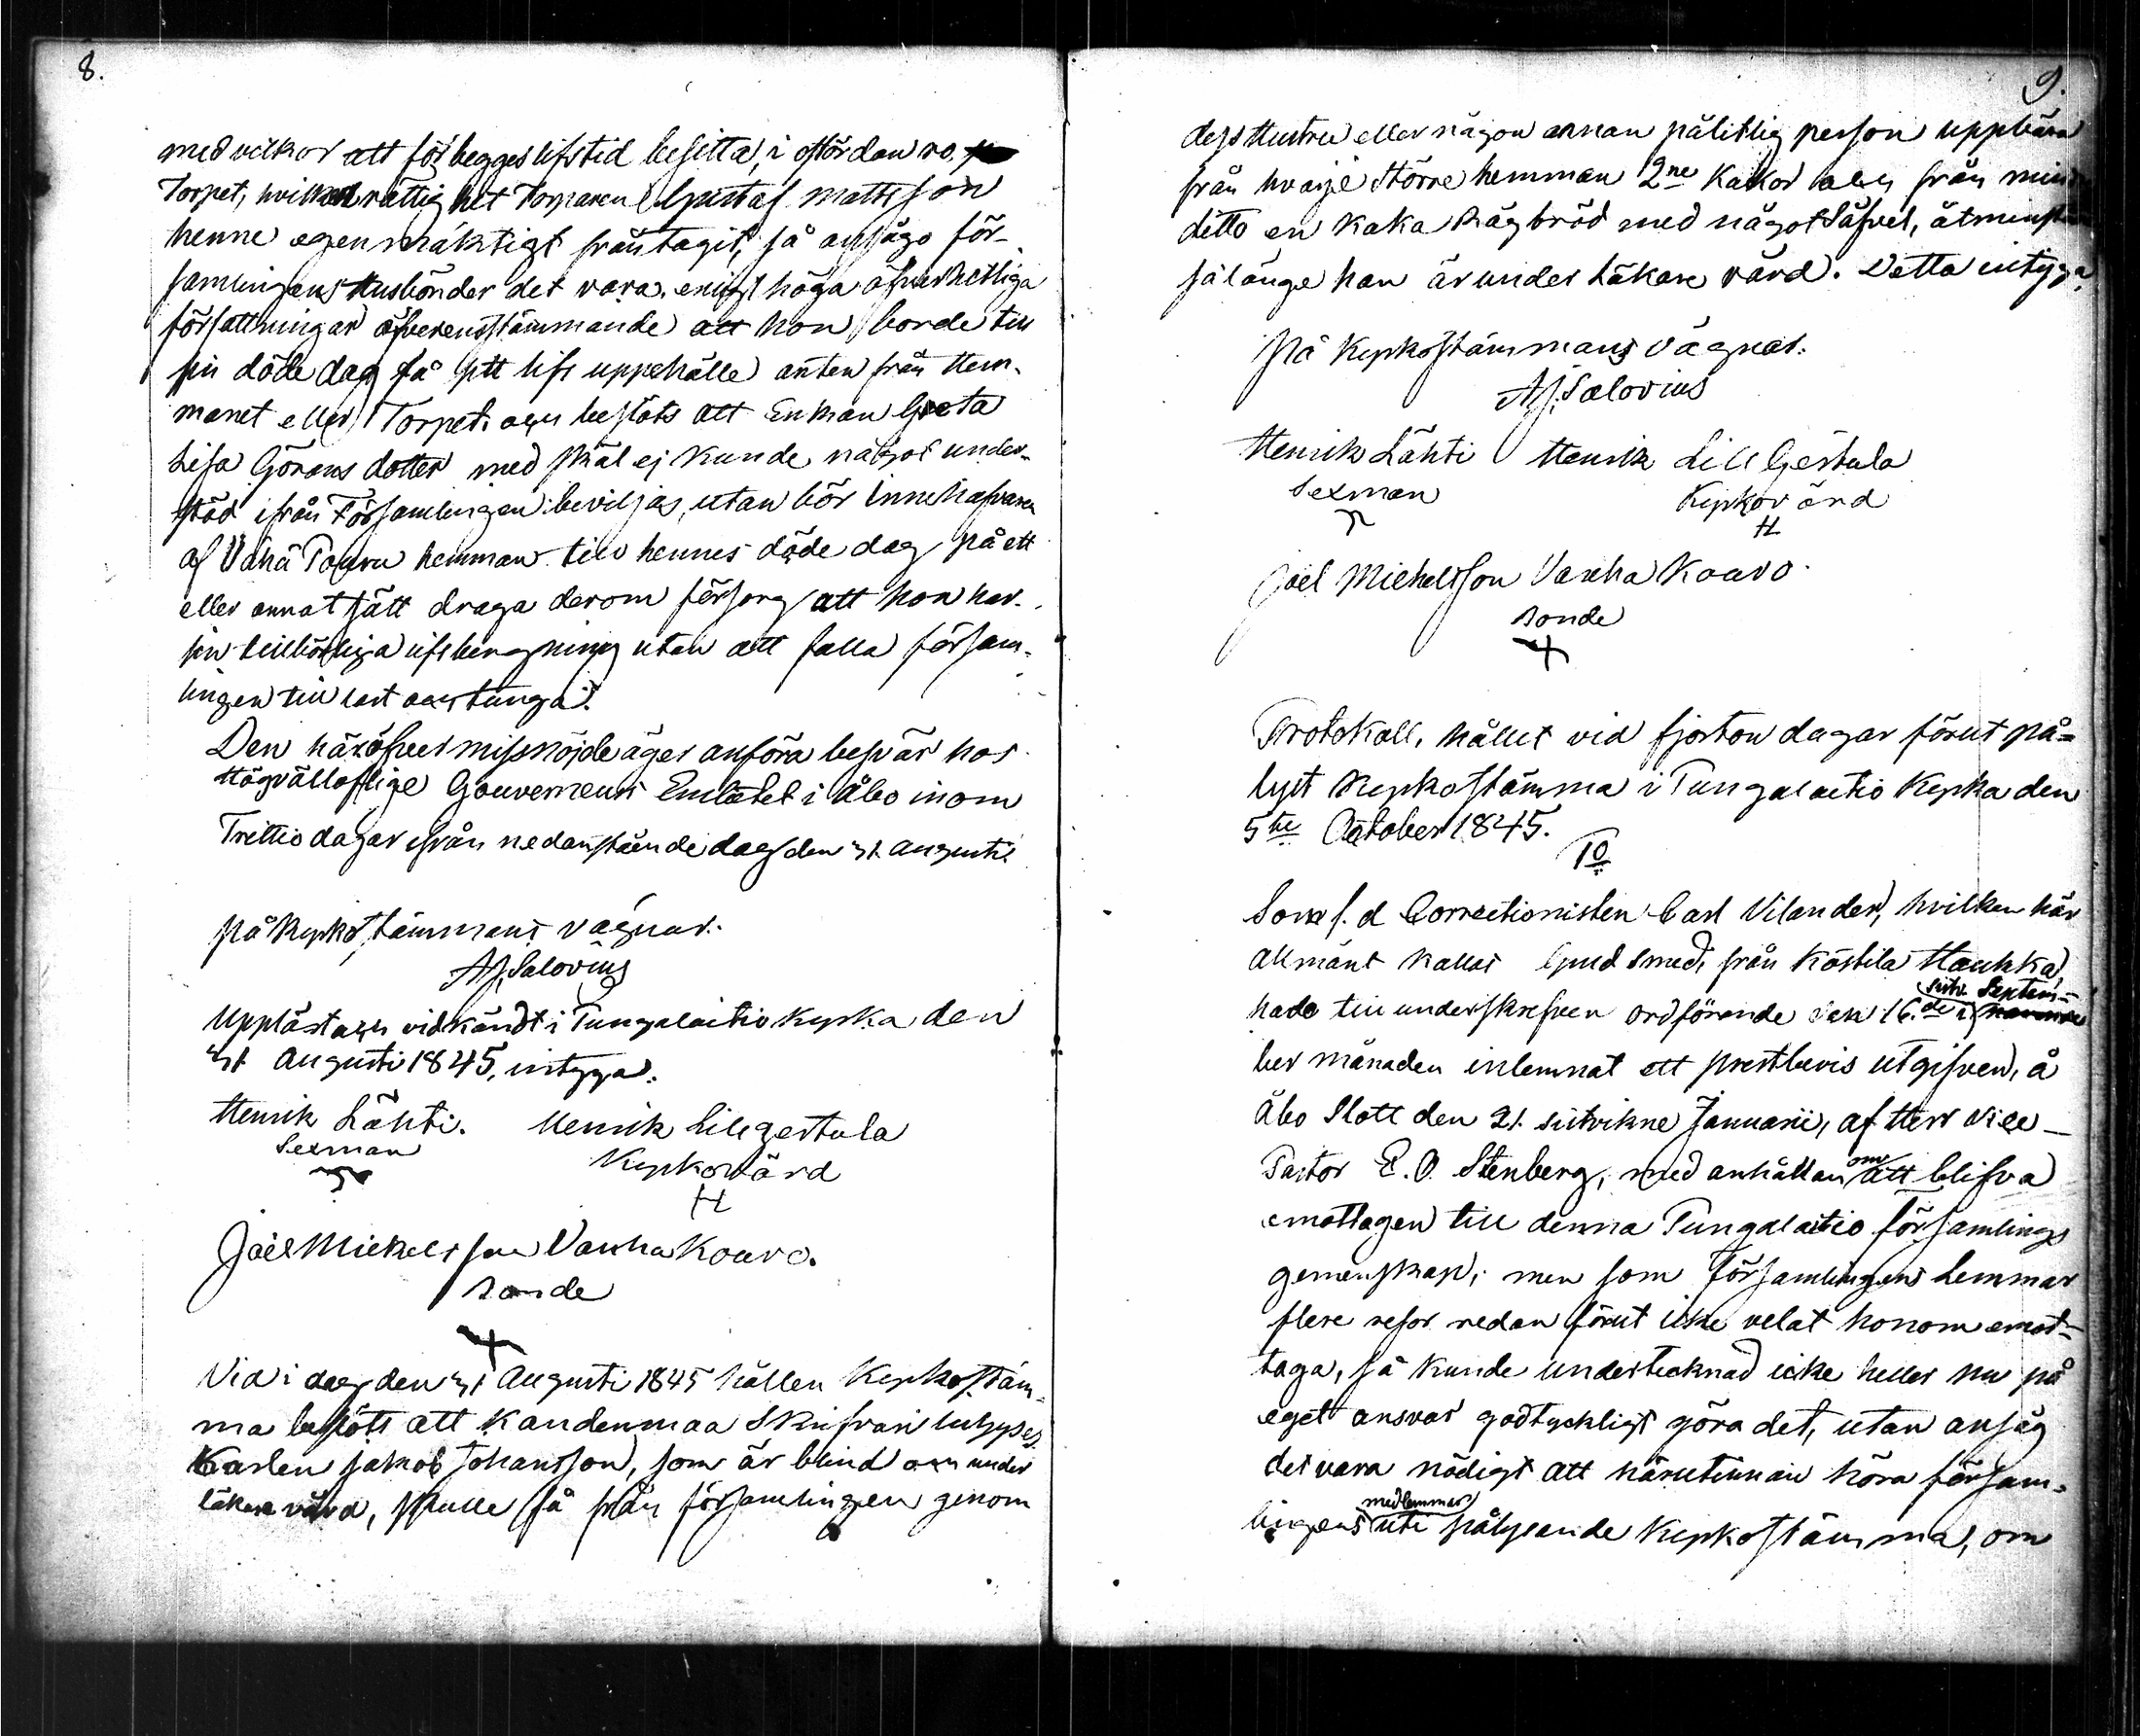 8.
med vilkor att för begges lifstid besitta, i ostördan ro,
Torpet, hvilken rättighet Torparen Gustaf Mattsson
henne egenmäktigt fråntagit, så ansågo för-
samlingens Husbönder det vara, enligt höga öfverhetliga
författningar öfverensstämmande att hon borde till
sin döde dag få sitt lifs uppehälle anten från Hem-
manet eller Torpet. och beslöts att Enkan Greta
Lisa Görans dotter med skäl ej kunde något under-
stöd ifrån Församlingen beviljas, utan bör Innehafvaren
af Vähä Touru hemman till hennes döde dag på ett
eller annat sätt draga derom försorg att hon har
sin tillbörliga lifsbergning utan att falla försam-
lingen till last och tunga.
Den häröfver missnöjde äger anföra besvär hos
Högvälloflige Gouvernements Embetet i Åbo inom
Trettio dagar ifrån nedanstående dag den 31 Augusti.
På Kyrkostämmans vägnar.
A.J. Salovius
Uppläst och vidkändt i Pungalaitio Kyrka den
31 Augusti 1845, intyga.
Henrik Lähti. Henrik Lill Gertula
Sexman Kyrkovärd
H
Joel Mickelsson Vanha Kouvo.
Bonde
Vid i dag den 31 Augusti 1845 hållen Kyrkostäm-
ma beslöts att Kandenmaa Skrifvari Inhyses
Karlen Jakob Johansson, som är blind och under
läkare vård, skulle få från församlingen genom
9.
dess Hustru eller någon annan pålitlig person uppbära
från hvarje större hemman 2ne Kakor och från mindre
ditto en Kaka Rågbröd med något Säfvel, åtminstone
så länge han är under Läkare vård. Detta intyga,
På Kyrkostämmans vägnar.
A.J. Salovius
Henrik Lähti Henrik Lill Gertula
Sexman Kyrkovärd
H
Joel Michelsson Vanha Kouvo
Bonde
Protokoll, hållet vid fjorton dagar förut på-
lyst Kyrkostämma i Pungalaitio Kyrka den
5te October 1845.
1o
Som f. d Correctionisten Carl Vilander, hvilken här
allmänt kallas Gjud smed, från Köstila Haukka
sistv. Septem-
hade till underskrefven ordförande den 16de i
ber månaden inlemnat ett prestbevis utgifven, å
Åbo Slott den 21. sistvikne Januarii, af Herr Vice
Pastor E. O. Stenberg, med anhållan om att blifva
emottagen till denna Pungalaitio församlings
gemenskap; men som församlingens Lemmar
flere resor redan förut icke velat honom emot-
taga, så kunde undertecknad icke heller nu på
eget ansvar godtyckligt göra det, utan ansåg
det vara nödigt att härutinnan höra försam-
lingens medlemmar uti pålysande Kyrkostämma, om